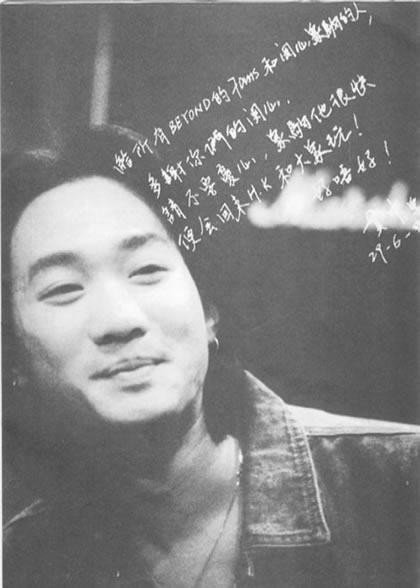 給所有BEYOND的Fans和関心家駒的人,
多謝你們的関心,
請不要憂心,家駒他很快
便会回来H.K和大家玩!
好唔好!
29-6-